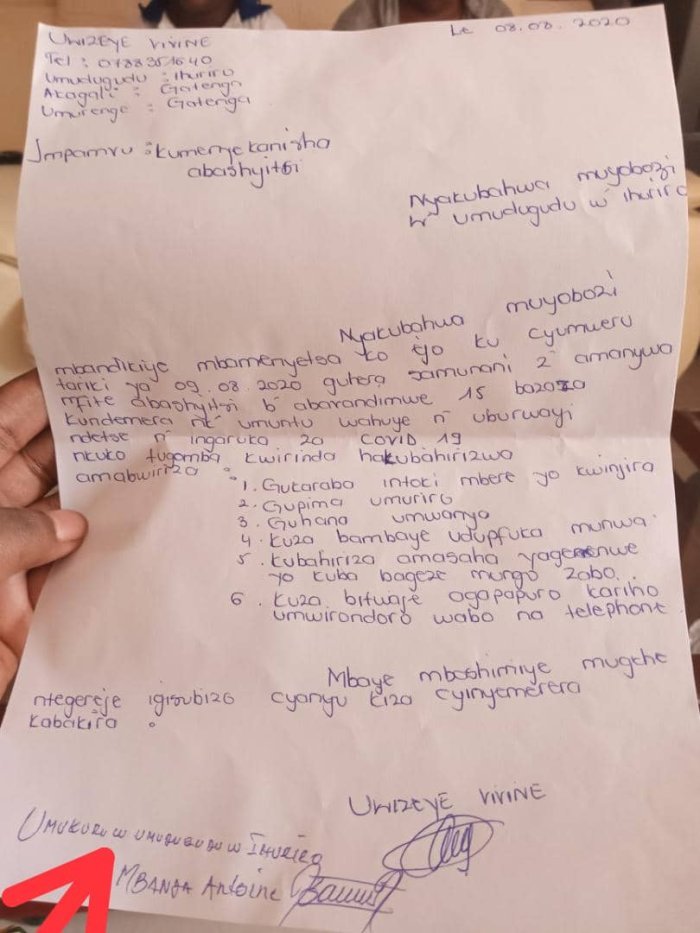 UWIZEYE VIVINE
Le 08.08.2020
Tel : 0788351640
Umudugudu : Ihuriro
Akagali : Gatenga
Umurenge : Gatenga
Impamvu : kumenyekanisha
abashyitsi
Nyakubahwa muyobozi
w' umudugudu w' ihuriro
Nyakubahwa muyobozi
mbandikiye mbamenyetsa ko ejo ku cyumweru
tariki ya 09.08.2020 guhera samunani z' amanywa
mfite abashyitsi b' abavandimwe 15 bazaza
kundemera nk' umuntu wahuye n' uburwayi
ndetse n' ingaruka za COVID 19
nkuko tugomba kwirinda hakubahirizwa
amabwiriza :
1. Gukaraba intoki mbere yo kwinjira
2. Gupima umuriro
3. Guhana umwanya
4. Kuza bambaye udupfuka munwa
5. Kubahiriza amasaha yagenwe
yo kuba bageze mungo zabo.
6. Kuza bitwaje agapapuro kariho
umwirondoro wabo na telephone
Mbaye mboshimiye mugihe
ntegereje igisubizo cyanyu kiza cyinyemerera
kubakira .
UWIZEYE VIVINE
UMUKURU W UMUDUGUDU W IHURIRO
MBANDA Antoine